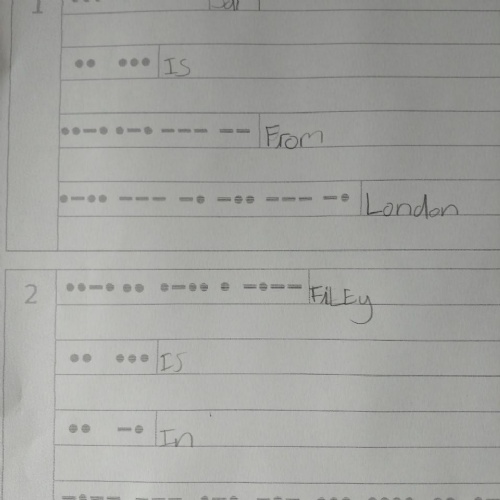 1
•• ••• IS
••–• •–• ––– –– From
•–•• ––– –• –•• ––– –• London
2
••–• •• •–•• • –•–– FiLEy
•• ••• IS
•• –• In